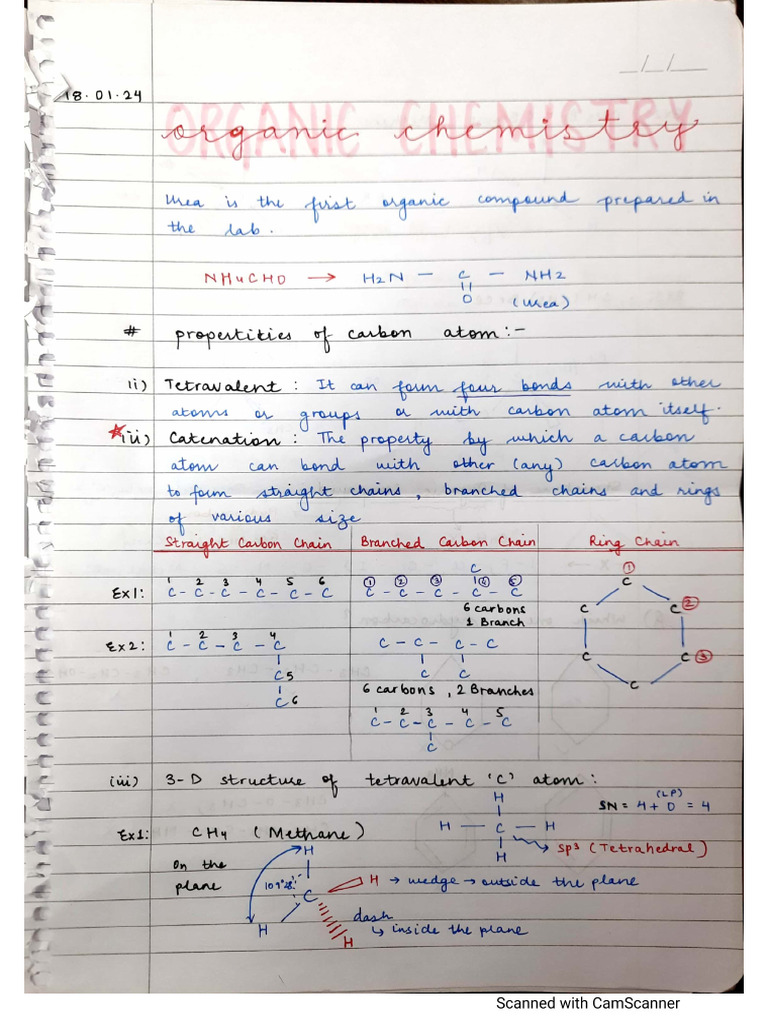 18.01.24
__/__/__
ORGANIC CHEMISTRY
organic chemistry
Urea is the first organic compound prepared in
the lab.
NH4CHO → H2N — C — NH2
||
O (Urea)
# propertities of carbon atom :-
(i) Tetravalent : It can form four bonds with other
atoms or groups or with carbon atom itself.
(ii) Catenation : The property by which a carbon
atom can bond with other (any) carbon atom
to form straight chains, branched chains and rings
of various size
Straight Carbon Chain Branched Carbon Chain Ring Chain
Ex1:
1 2 3 4 5 6
C - C - C - C - C - C
C
① ② ③ ④ ⑤
C - C - C - C - C
6 carbons
1 Branch
Ex2:
1 2 3 4
C - C - C - C
C 5
C 6
C - C - C - C
C C
6 carbons, 2 Branches
1 2 3 4 5
C - C - C - C - C
C
①
C
C C ②
C C ③
C
(iii) 3-D structure of tetravalent 'C' atom :
Ex1: CH4 (Methane)
H
H — C — H
H
(LP)
SN = 4 + 0 = 4
sp3 (Tetrahedral)
On the
plane
H
109°28'
C
H
H → wedge → outside the plane
dash
↳ inside the plane
H
Scanned with CamScanner